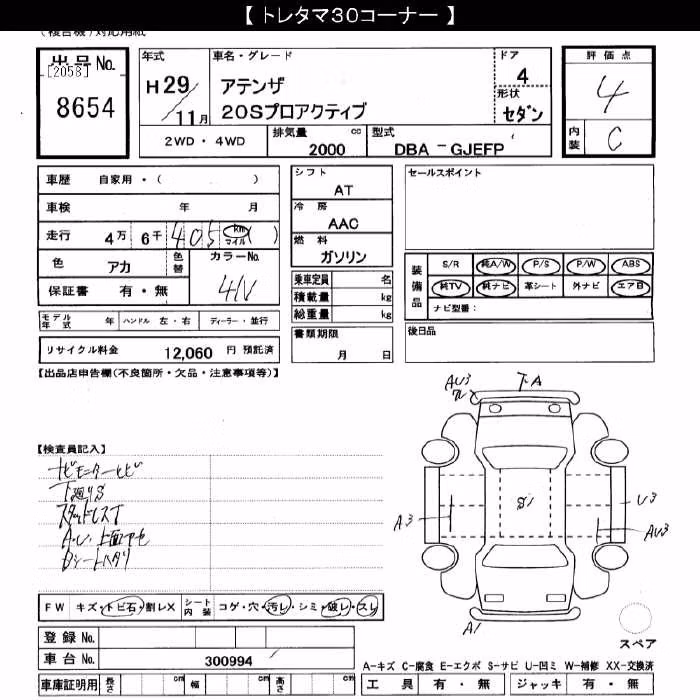 【 トレタマ30コーナー 】
(複合機)対応用紙
出品 No.
[2058]
8654
年式
H29/11月
車名・グレード
アテンザ
20Sプロアクティブ
ドア
4
形状
セダン
2WD ・ 4WD
排気量 cc
2000
型式
DBA - GJEFP
評価点
4
内装
C
車歴 自家用・( )
車検 年 月
走行 4万 6千 405 km マイル ( )
色 アカ 色替
カラーNo.
41V
保証書 有・無
モデル年式 年 ハンドル 左・右 ディーラー・並行
リサイクル料金 12,060 円 預託済
シフト
AT
冷房
AAC
燃料
ガソリン
乗車定員 名
積載量 kg
総重量 kg
書類期限
月 日
セールスポイント
装備品
S/R 純A/W P/S P/W ABS
純TV 純ナビ 革シート 外ナビ エアB
ナビ型番:
後日品
【出品店申告欄(不良箇所・欠品・注意事項等)】
【検査員記入】
ナビモニターヒビ
下廻りS
スタッドレスT
A・U・上面ヤセ
Dシートハタリ
AU3
下A
A3
S1
U3
AU3
A1
スペア
FW キズ・トビ石・割レX シート内装 コゲ・穴・汚レ・シミ・破レ・スレ
登録 No.
車台 No. 300994
車庫証明用 長さ cm 幅 cm 高さ cm
A-キズ C-腐食 E-エクボ S-サビ U-凹ミ W-補修 XX-交換済
工具 有・無 ジャッキ 有・無